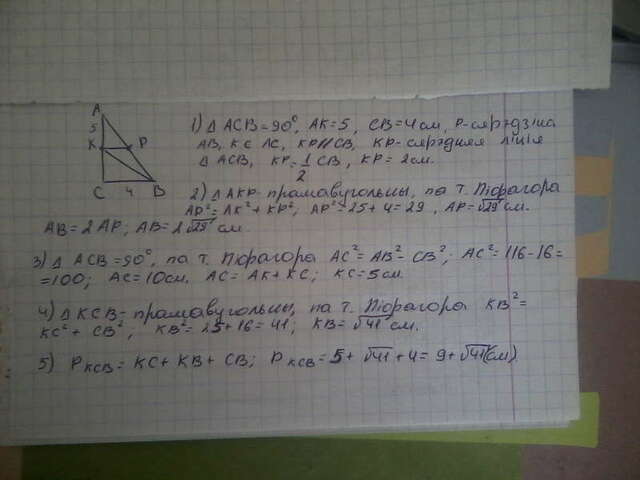 A
5
K
P
C
4
B
1) Δ ACB = 90°, AK = 5, CB = 4 см, P - сярэдзіна
AB, K ∈ AC, KP∥CB, KP - сярэдняя лінія
Δ ACB, KP = 1/2 CB, KP = 2 см.
2) Δ AKP - прамавугольны, па т. Піфагора
AP² = AK² + KP², AP² = 25 + 4 = 29, AP = √29 см.
AB = 2 AP; AB = 2√29 см.
3) Δ ACB = 90°, па т. Піфагора AC² = AB² - CB²; AC² = 116 - 16 =
= 100; AC = 10 см. AC = AK + KC; KC = 5 см
4) Δ KCB - прамавугольны, па т. Піфагора KB² =
KC² + CB², KB² = 25 + 16 = 41; KB = √41 см.
5) P KCB = KC + KB + CB; P KCB = 5 + √41 + 4 = 9 + √41 (см)